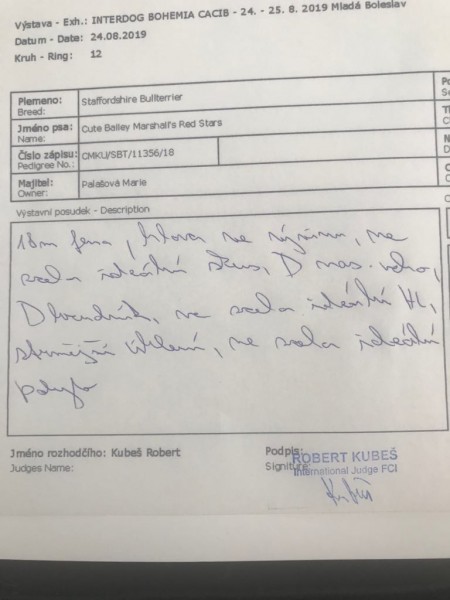 Výstava - Exh.: INTERDOG BOHEMIA CACIB - 24. - 25. 8. 2019 Mladá Boleslav
Datum - Date: 24.08.2019
Kruh - Ring: 12
Plemeno: Staffordshire Bullterrier
Breed:
Jméno psa: Cute Bailey Marshall's Red Stars
Name:
Číslo zápisu: CMKU/SBT/11356/18
Pedigree No.:
Majitel: Palašová Marie
Owner:
Výstavní posudek - Description
18m fena, hlava ve výrazu, ne
zcela ideální skus, D nas. ucho,
D hrudník, ne zcela ideální HL,
strmější úhlení, ne zcela ideální
pohyb
Jméno rozhodčího: Kubeš Robert
Judges Name:
Podpis:
Signiture:
ROBERT KUBEŠ
International Judge FCI